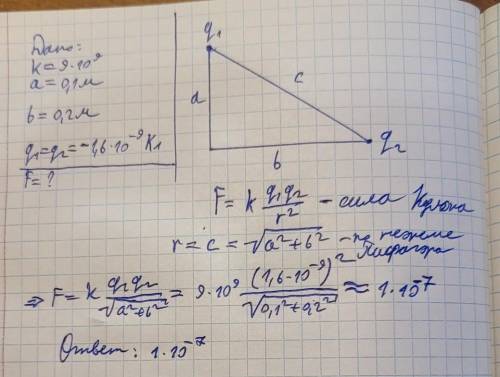 Дано:
k = 9·10⁹
a = 0,1м
b = 0,2м
q₁=q₂=-1,6·10⁻⁹ Кл
F = ?
q₁
a
c
b
q₂
F = k q₁q₂/r² - сила Кулона
r = c = √(a²+b²) - по теореме
Пифагора
⇒ F = k q₁q₂/√(a²+b²) = 9·10⁹ (1,6·10⁻⁹)²/√(0,1²+0,2²) ≈ 1·10⁻⁷
Ответ: 1·10⁻⁷